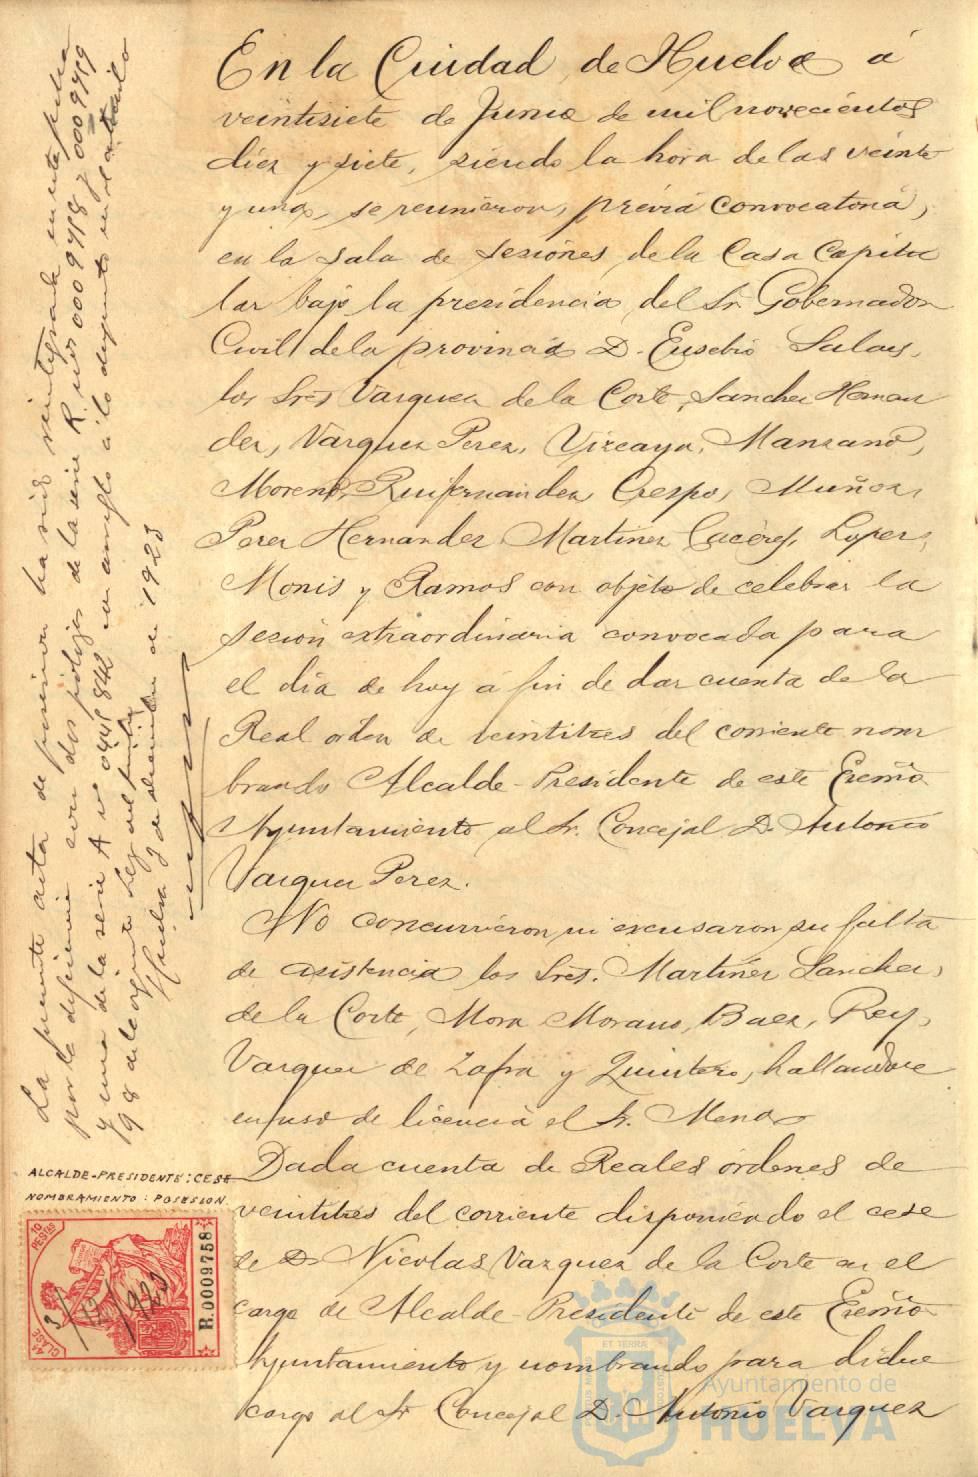 En la Ciudad de Huelva á
veintisiete de Junio de mil novecientos
diez y siete, siendo la hora de las veinte
y una, se reunieron, prévia convocatoria,
en la sala de sesiónes de la Casa Capitu
lar bajo la presidencia del Sr. Gobernador
Civil de la provincia D. Eusebio Salas,
los Sres Vazquez de la Corte, Sanchez Hernan
dez, Vazquez Perez, Vizcaya, Manzano,
Moreno, Ruifernandez, Crespo, Muñoz,
Perez Hernandez, Martinez Cacéres, Lopez,
Monis y Ramos con objeto de celebrar la
sesión extraordinaria convocada para
el día de hoy á fin de dar cuenta de la
Real orden de veintitres del corriente nom
brando Alcalde-Presidente de este Excmo
Ayuntamiento al Sr. Concejal D. Antonio
Vazquez Perez.
No concurrieron ni excusaron su falta
de asistencia los Sres. Martinez Sanchez,
de la Corte, Mora Morano, Baez, Rey,
Vazquez de Zafra y Quintero, hallandose
en uso de licencia el Sr. Mena
Dada cuenta de Reales órdenes de
veintitres del corriente disponiendo el cese
de D. Nicolas Vazquez de la Corte en el
cargo de Alcalde-Presidente de este Excmo
Ayuntamiento y nombrando para dicho
cargo al Sr Concejal D. Antonio Vazquez
La presente acta de posesion ha sido reintegrada en esta fecha
por la diferencia con dos polizas de la serie R. nºs 0009758 y 0009759
y una de la serie A nº 0441842 con arreglo á lo dispuesto en el articulo
198 de la vigente Ley del timbre
Huelva 3 de diciembre de 1923
ALCALDE-PRESIDENTE: CESE
NOMBRAMIENTO: POSESION.
10 PESETAS
CLASE 4ª
R.0009758
3/12/1923
ET TERRA
Ayuntamiento de
HUELVA